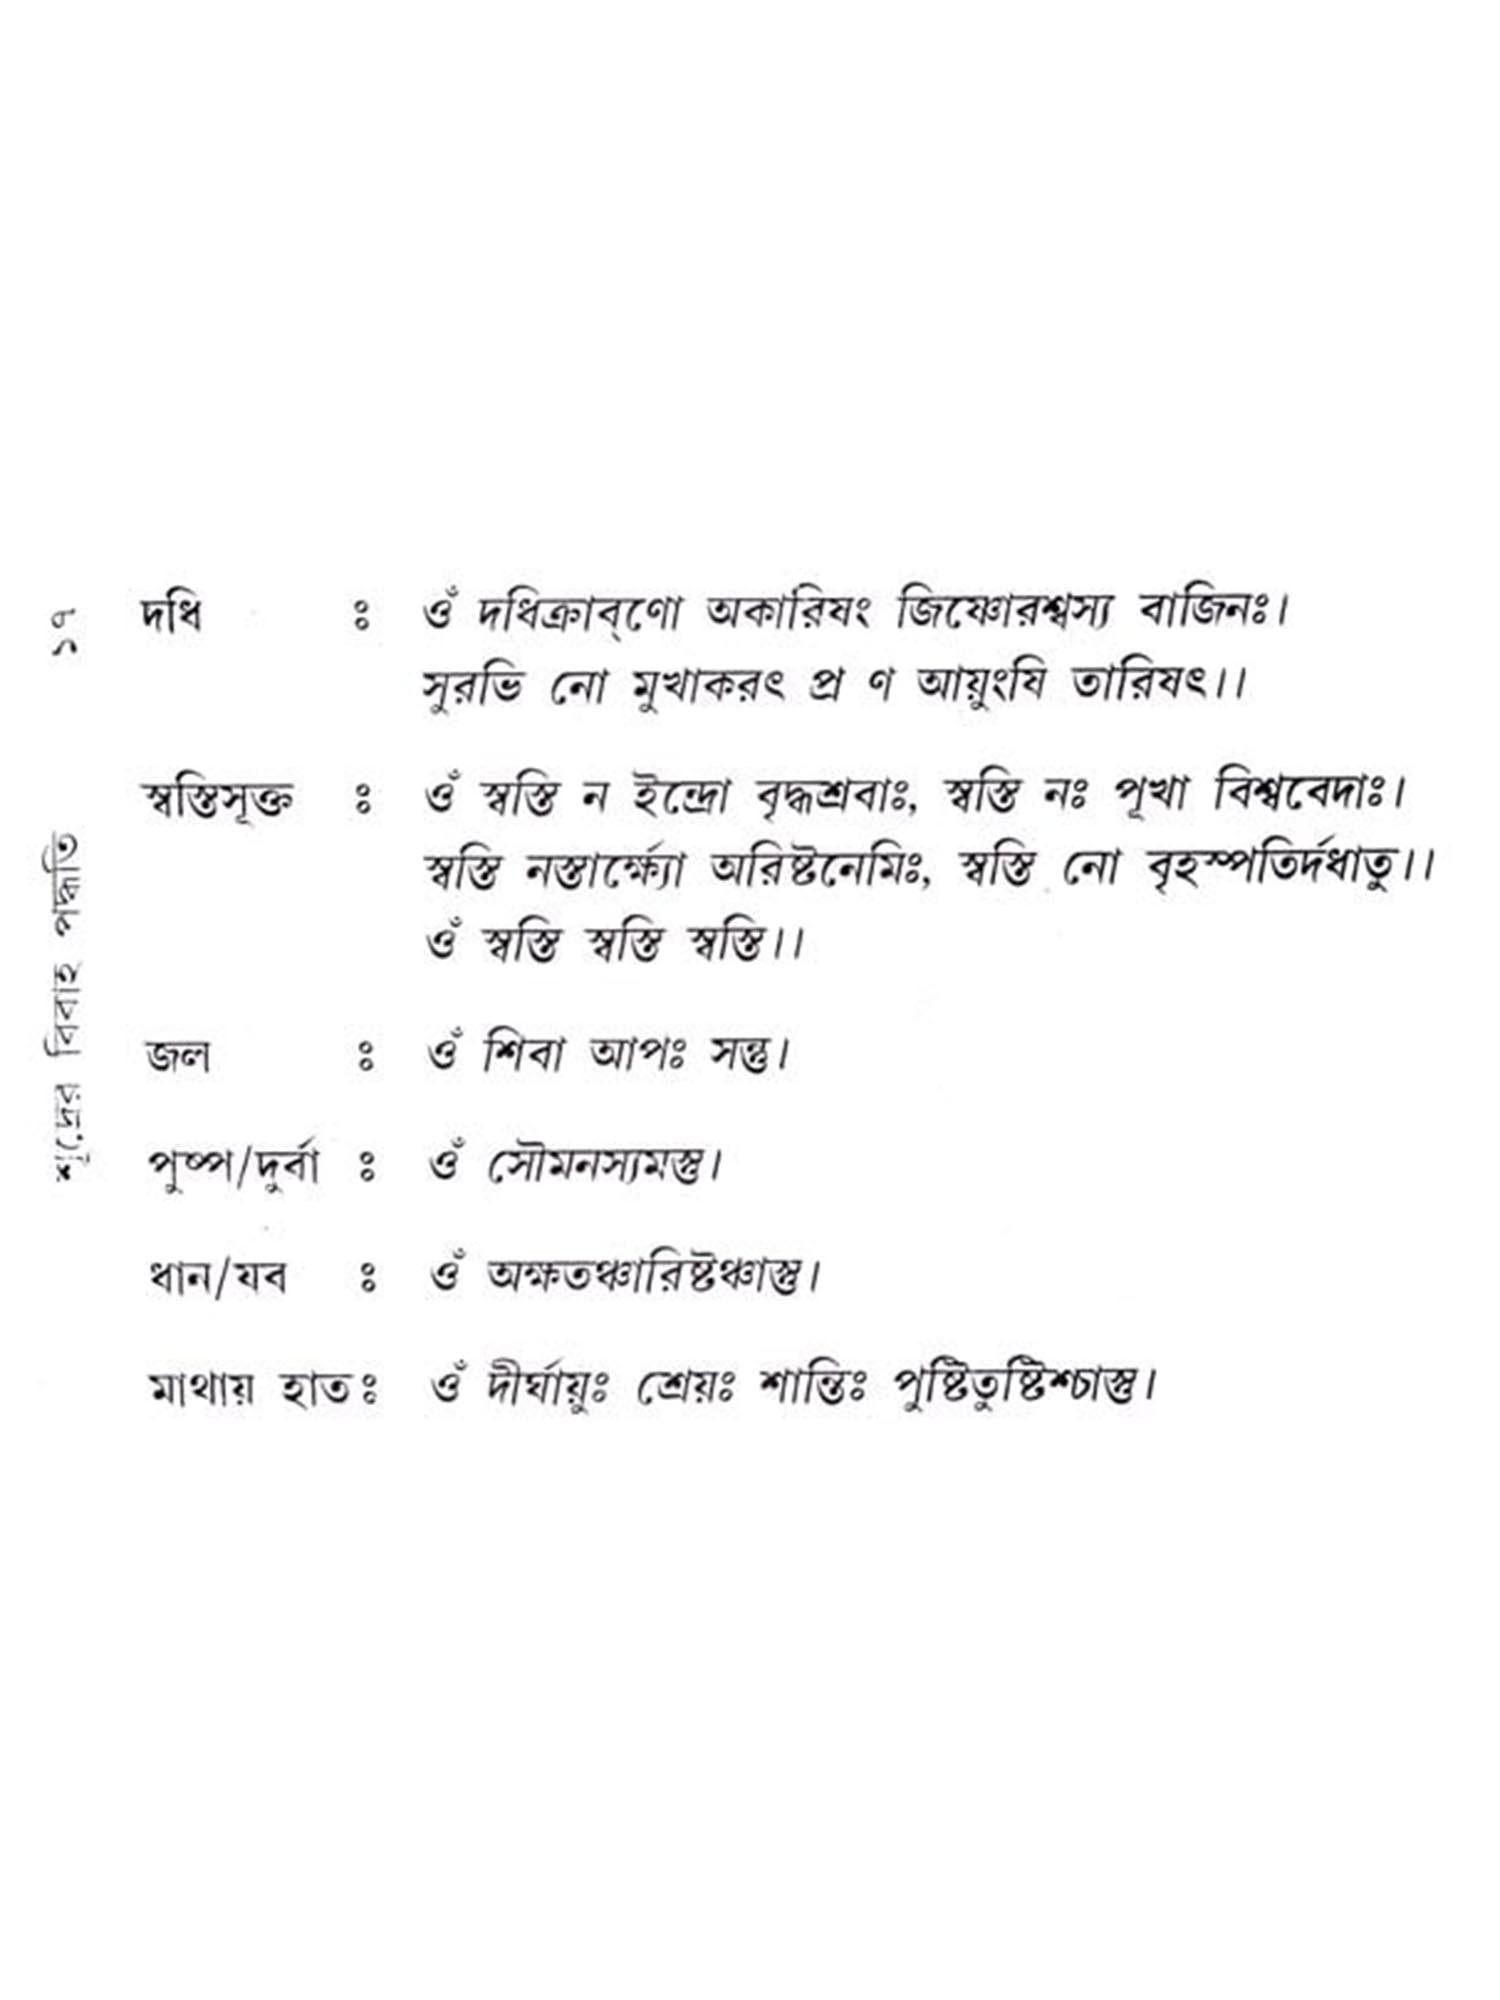 ১৭
শূদ্রের বিবাহ পদ্ধতি
দধি ঃ ওঁ দধিক্রাব্‌ণো অকারিষং জিষ্ণোরশ্বস্য বাজিনঃ।
সুরভি নো মুখাকরৎ প্র ণ আয়ুংষি তারিষৎ।।
স্বস্তিসূক্ত ঃ ওঁ স্বস্তি ন ইন্দ্রো বৃদ্ধশ্রবাঃ, স্বস্তি নঃ পূখা বিশ্ববেদাঃ।
স্বস্তি নস্তার্ক্ষ্যো অরিষ্টনেমিঃ, স্বস্তি নো বৃহস্পতির্দধাতু।।
ওঁ স্বস্তি স্বস্তি স্বস্তি।।
জল ঃ ওঁ শিবা আপঃ সন্তু।
পুষ্প/দুর্বা ঃ ওঁ সৌমনস্যমস্তু।
ধান/যব ঃ ওঁ অক্ষতঞ্চারিষ্টঞ্চাস্তু।
মাথায় হাত ঃ ওঁ দীর্ঘায়ুঃ শ্রেয়ঃ শান্তিঃ পুষ্টিতুষ্টিশ্চাস্তু।